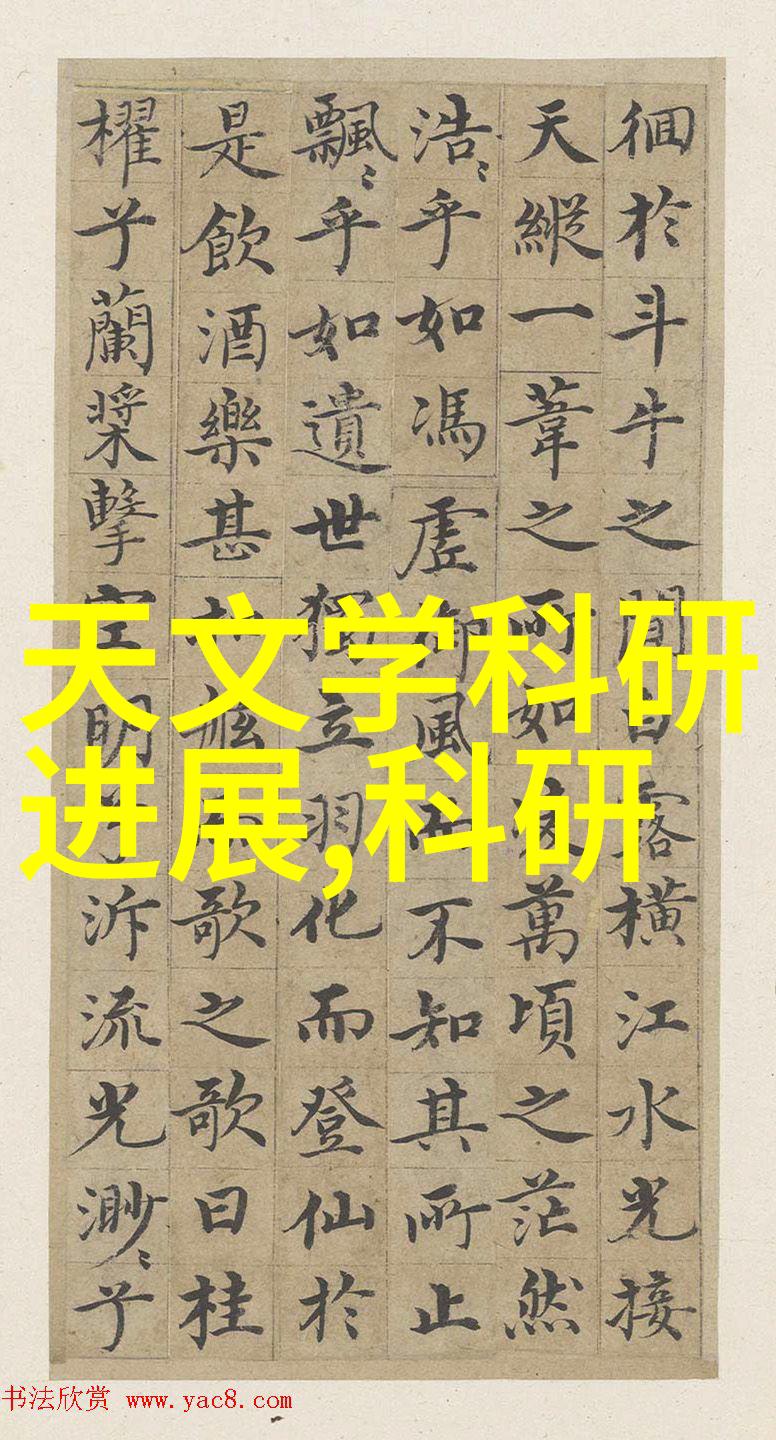 徊於斗牛之間白露橫江水光接
天縱一葦之所如凌萬頃之茫然
浩〻乎如馮虛御風而不知其所止
飄〻乎如遺世獨立羽化而登仙於
是飲酒樂甚扣舷而歌之歌曰桂
櫂兮蘭槳擊空明兮泝流光渺〻兮
天文学科研
进展,科研
书法欣赏 www.yac8.com